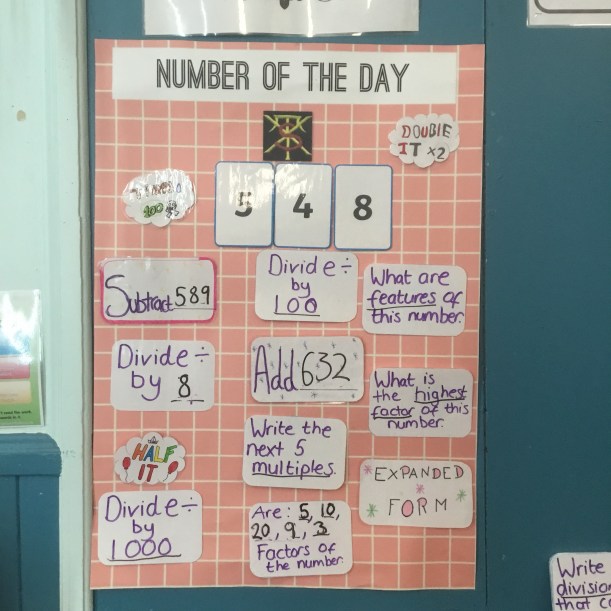 NUMBER OF THE DAY
DOUBLE
IT x2
100
5 4 8
Subtract 589
Divide ÷
by
100
What are
features of
this number.
Divide ÷
by 8
Add 632
What is
the highest
factor of this
number.
HALF
IT
Write the
next 5
multiples.
*EXPANDED
FORM
Divide ÷
by
1000
Are: 5, 10,
20, 9, 3
Factors of
the number.
Write
division
that c